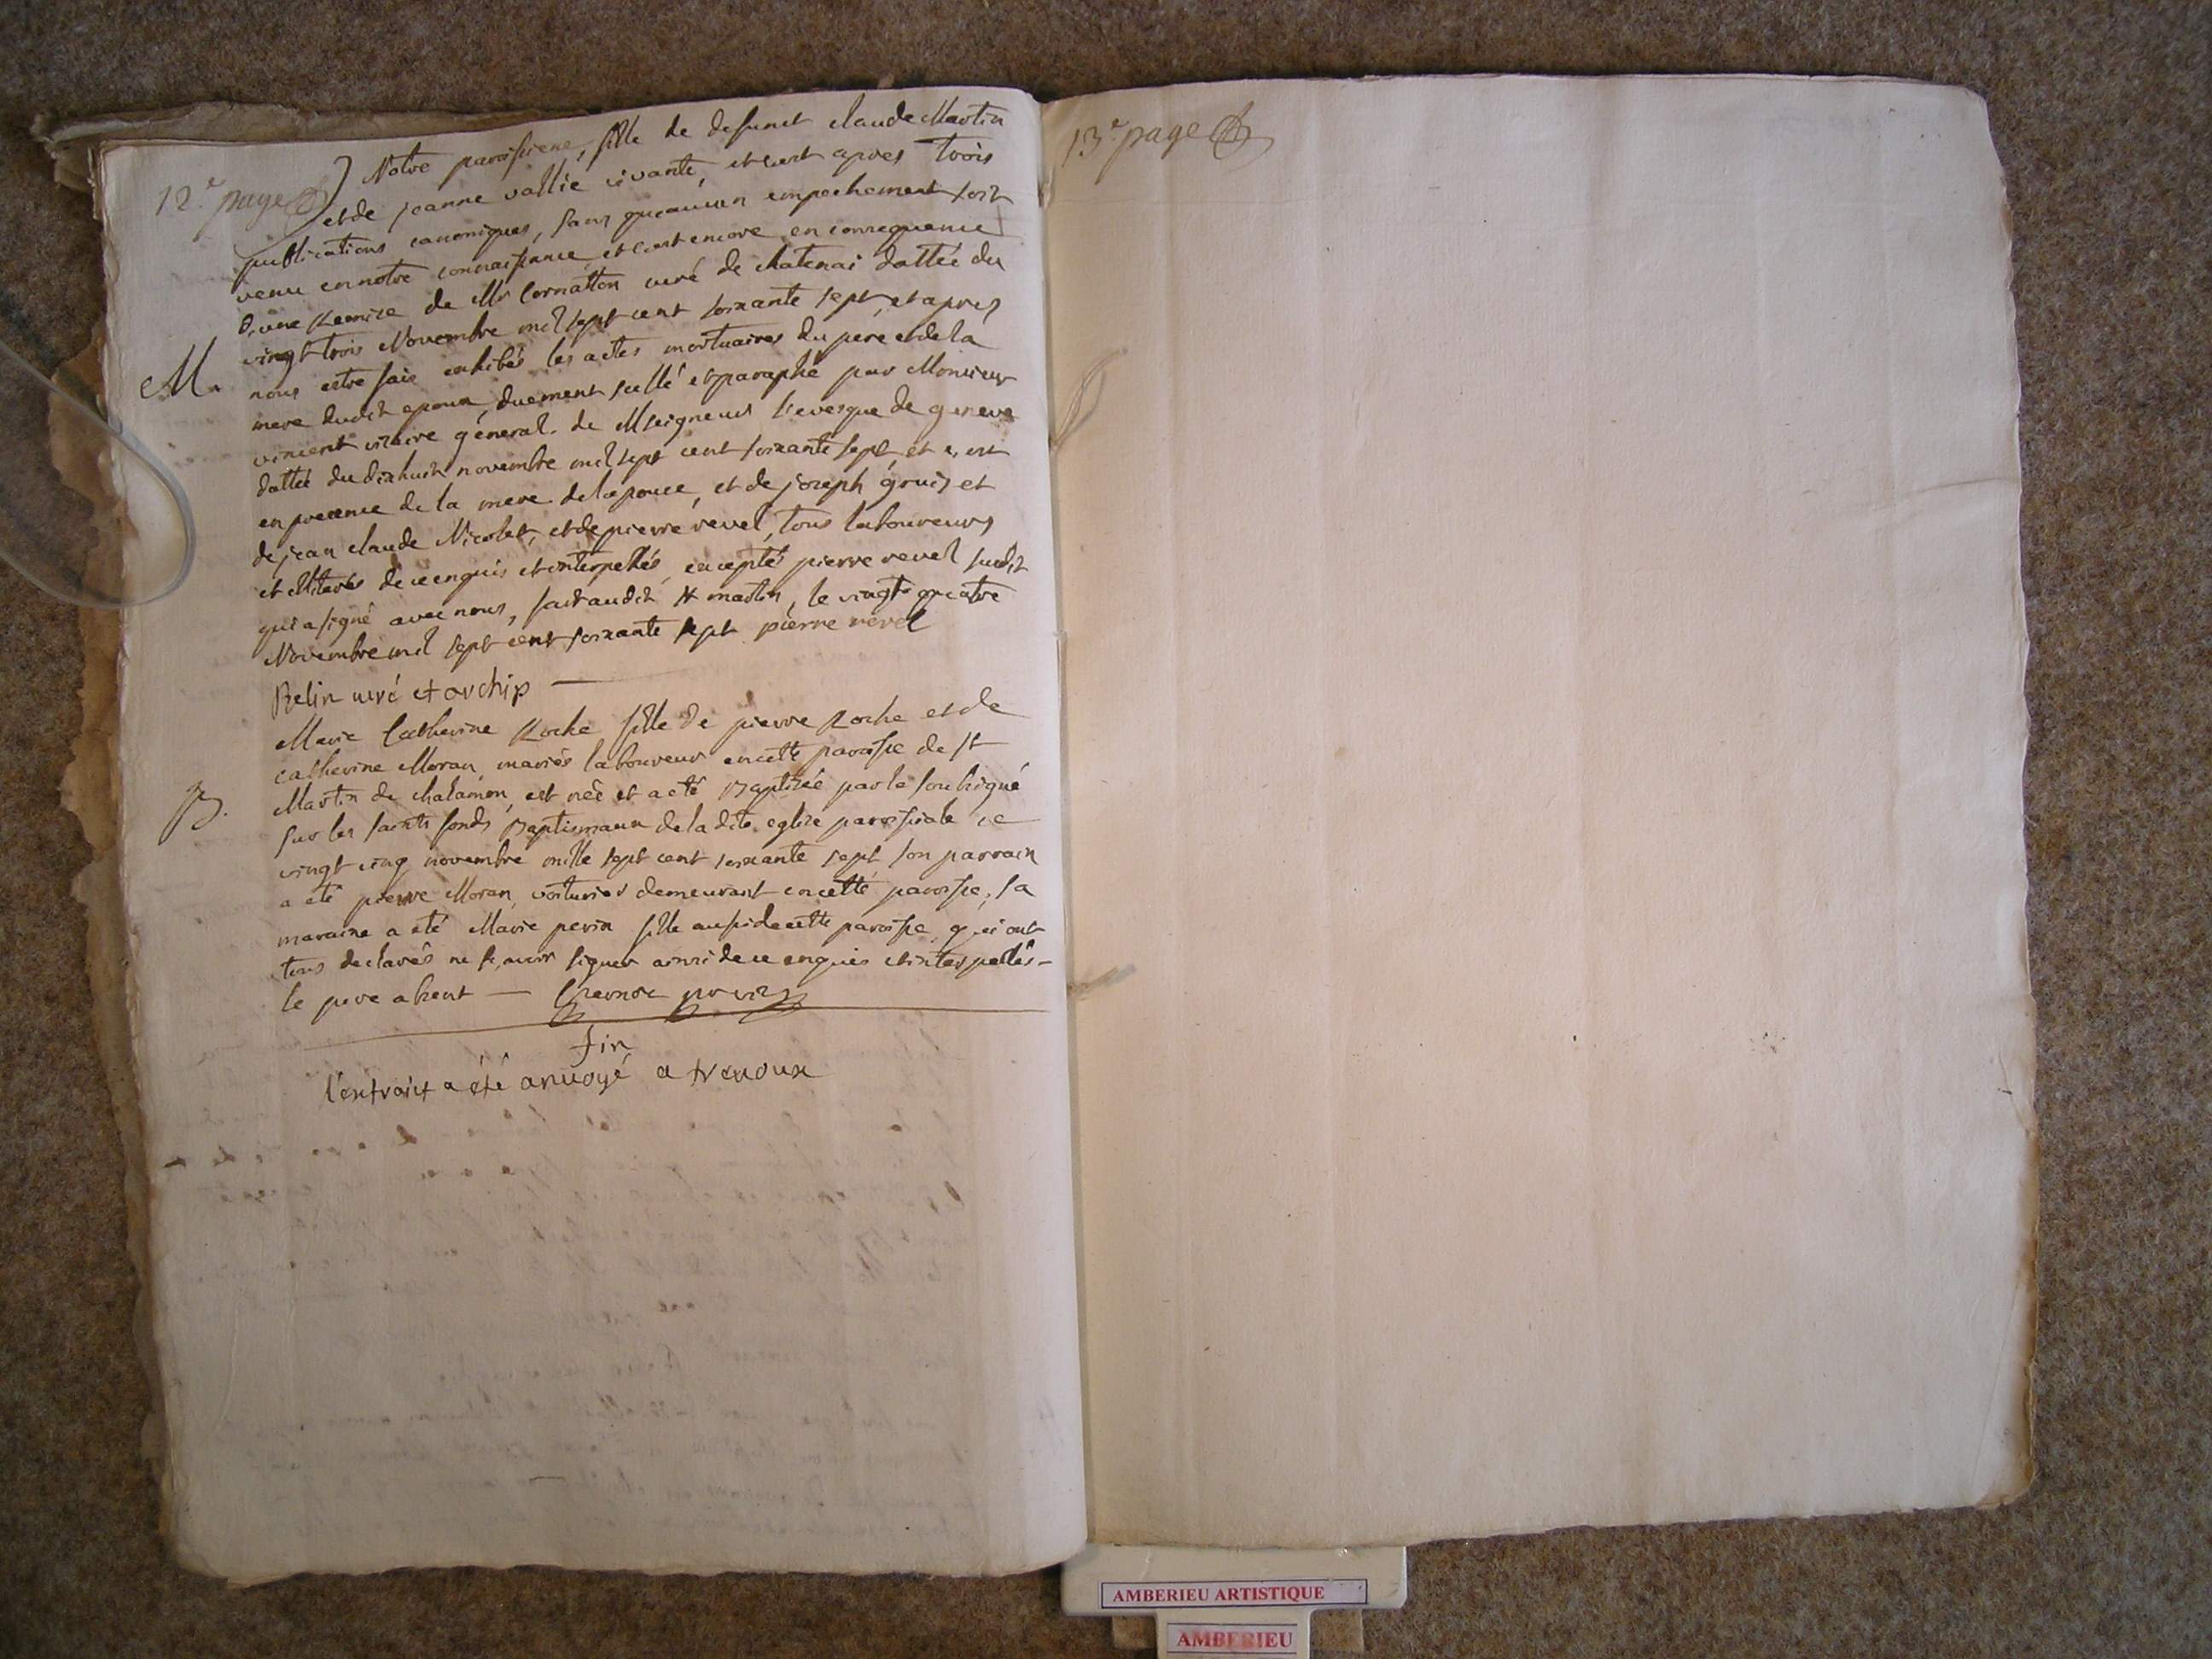 12.e page
Notre paroissiene, fille de defunct claude Martin
et de jeanne vallié vivante, et c'est apres trois
publications canoniques, sans qu'aucun empechement soit
venu en notre connaissance, et c'est encore en consequence
d'une Remise de Mr Cornatton curé de chatenai dattée du
vingt trois Novembre mil sept cent soixante sept, et apres
M.
nous estre fais exhibés les actes mortuaires du pere et de la
mere dudit epoux, duement sellé et paraphé par Monsieur
vincent vicaire géneral de Mseigneur l'evesque de geneve
dattée du dix huit novembre mil sept cent soixante sept, et c'est
en presence de la mere de l'epouce, et de joseph gouis et
de jean claude Nicolet, et de pierre revel, tous laboureurs
et illiterés de ce enquis et interpellés, exceptés pierre revel sudit
qui a signé avec nous, fait audit st martin, le vingt quatre
Novembre mil sept cent soixante sept pierre revel
Belin curé et archip
Marie Catherine Roche fille de pierre Roche et de
catherine Moran, mariés laboureur en cette paroisse de st
B.
Martin de chalamon, est née et a été Baptisée par le soussigné
sur les saints fonds Baptismaux de la dite eglise paroissiale ce
vingt cinq novembre mille sept cent soixante sept, son parrain
a été pierre Moran, voiturier demeurant en cette paroisse, sa
maraine a été Marie perin fille aussi de cette paroisse, qui ont
tous declarés ne sçavoir signer ainsi de ce enquis et interpellés -
le pere absent
fin
l'extrait a été anvoyé a trevoux
13.e page
AMBERIEU ARTISTIQUE
AMBERIEU